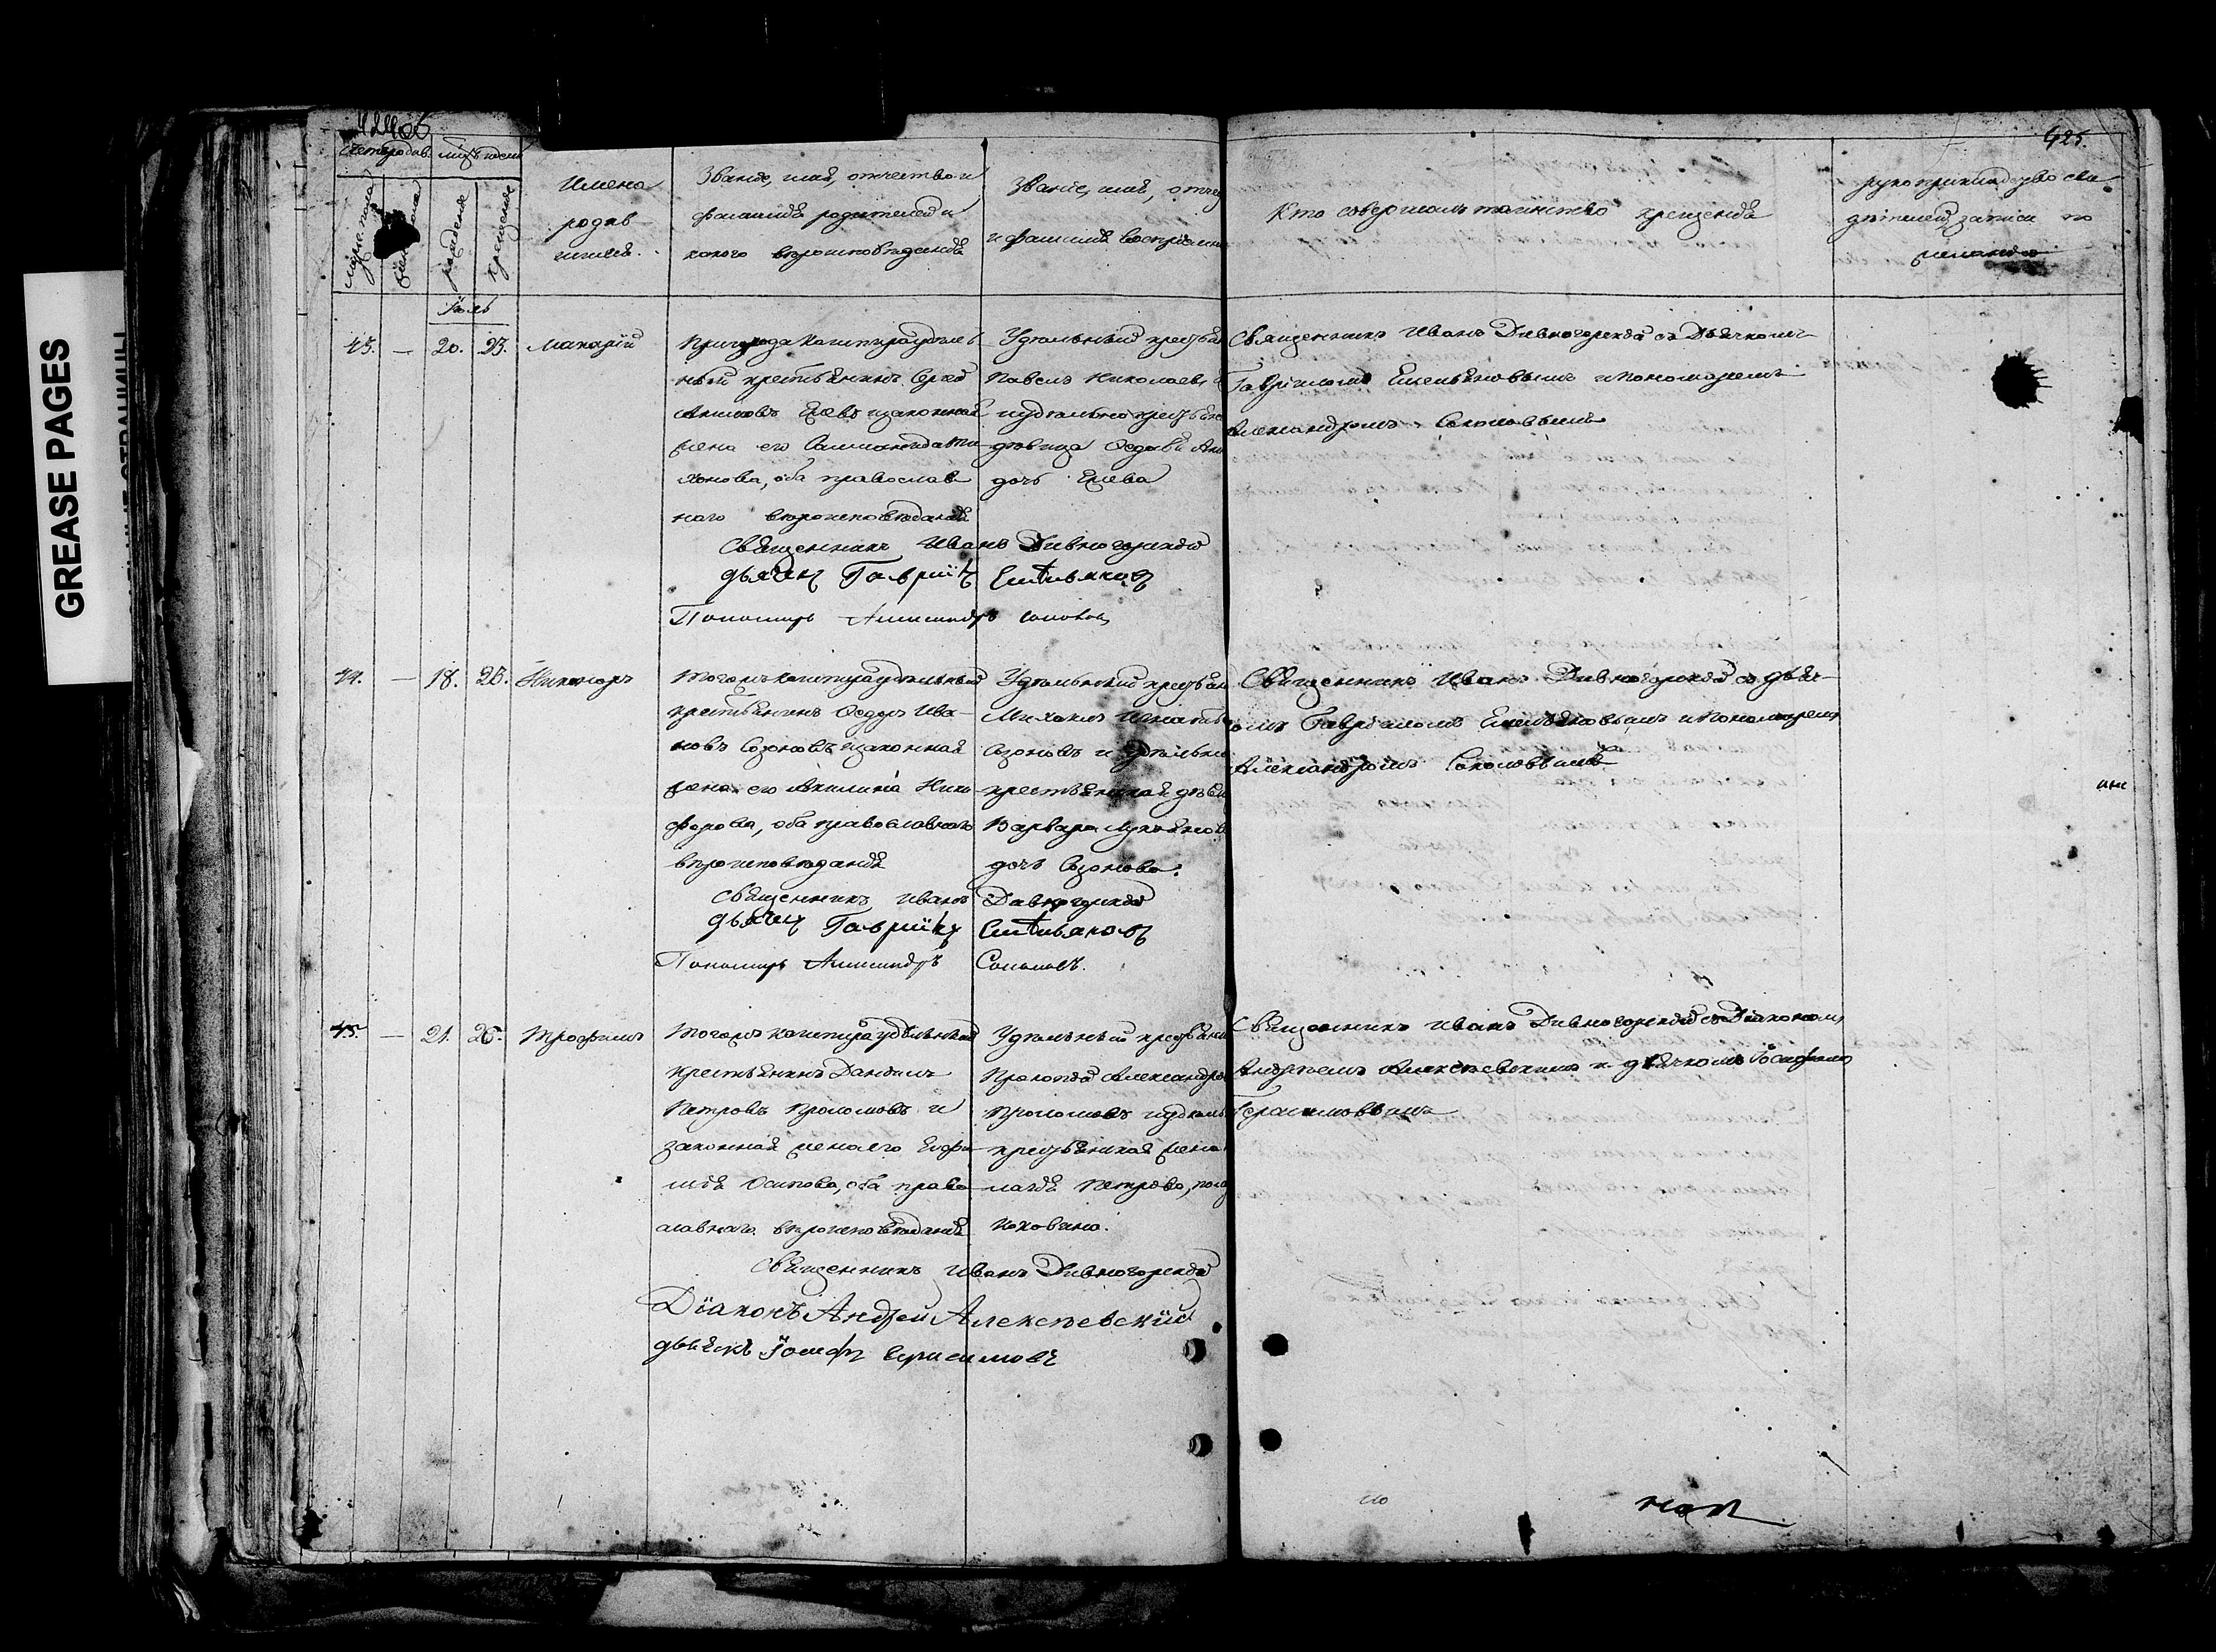 GREASE PAGES
424 об
425.
Счетъ родив.
Мѣсяцъ и день
мужеска пола
женска пола
рожденія
крещенія
Имена
родив
шихся.
Званіе, имя, отчество и
фамилія родителей и
какого вѣроисповѣданія
Званіе, имя, отче
и фамилія воспріемни
Кто совершалъ таинство крещенія
рукоприкладство сви
дѣтелей записи по
желанію
Іюль
43. — 20. 23. Макарій
Пригорода Кашпира удѣль
ный крестьянинъ Сергѣй
Елевъ и законная
жена его Соломонида Ти
хонова, оба православ
наго вѣроисповѣданія
Удѣльный крестьян
Павелъ Николаевъ
и удѣльнаго крестьян
дѣвица Ѳедосья
дочь Елева
Священникъ Иванъ Дивногорскій съ Дьячкомъ
Гавріиломъ Емельяновымъ и Пономаремъ
Александромъ Соколовымъ
Священникъ Иванъ Дивногорскій
дьячекъ Гавріилъ Емельяновъ
Пономарь Александръ Соколовъ
44. — 18. 25. Никаноръ
Тогожъ Кашпира удѣльный
крестьянинъ Ѳедоръ Ива-
новъ Созоновъ и законная
жена его Акилина Ники-
форова, оба православнаго
вѣроисповѣданія
Удѣльный крестьян
Михаилъ Игнатье
Созоновъ и удѣльна
крестьянская дѣви
Варвара Лукьянов
дочь Созонова.
Священникъ Иванъ Дивногорскій съ дьяч-
омъ Гавріиломъ Емельяновымъ и Пономаремъ
Александромъ Соколовымъ
Священникъ Иванъ Дивногорскій
дьячекъ Гавріилъ Емельяновъ
Пономарь Александръ Соколовъ.
45. — 21. 26. Трофимъ
Тогожъ Кашпира удѣльный
крестьянинъ Даніилъ
Петровъ Проломовъ и
законная жена его Евфи
мія Осипова, оба право
славнаго вѣроисповѣданія
Удѣльный крестьяни
Прокопій Александро
Проломовъ и удѣль
крестьянская жена
Петрова,
Священникъ Иванъ Дивногорскій съ Діакономъ
Андреемъ Алексѣевскимъ и дьячкомъ Іосифомъ
Герасимовымъ
Священникъ Иванъ Дивногорскій
Діаконъ Андрей Алексѣевскій
дьячекъ Іосифъ Герасимовъ